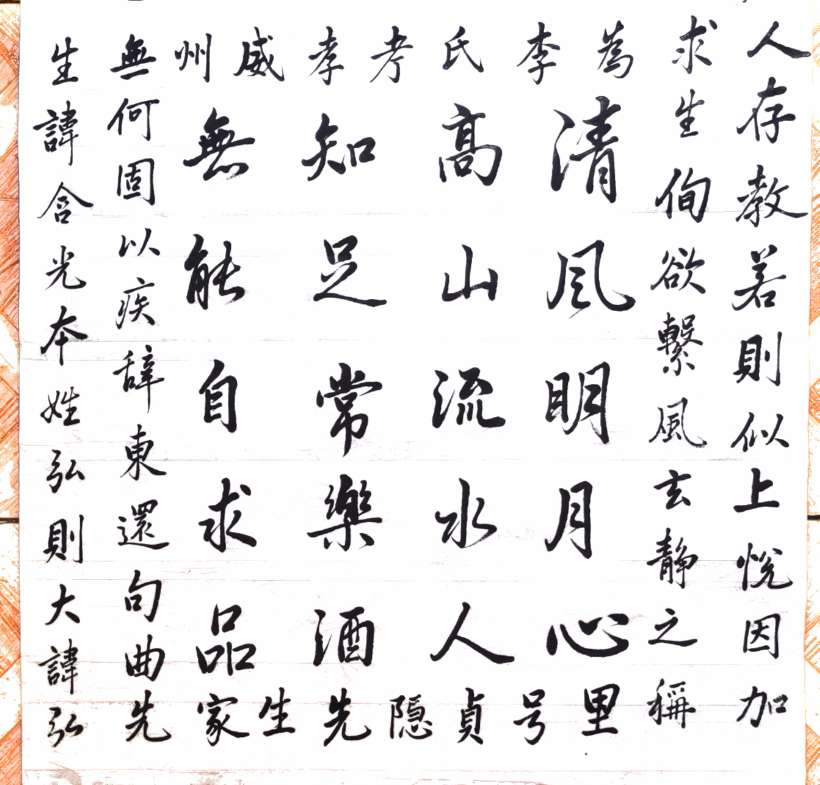 人存教若則似上悅因加
求生侚欲繫風玄静之稱
為李氏考孝威州
清風明月心
高山流水人
知足常樂酒
無能自求品
里号貞隐先生家
無何固以疾辭東還句曲先
生諱含光本姓弘則大諱弘